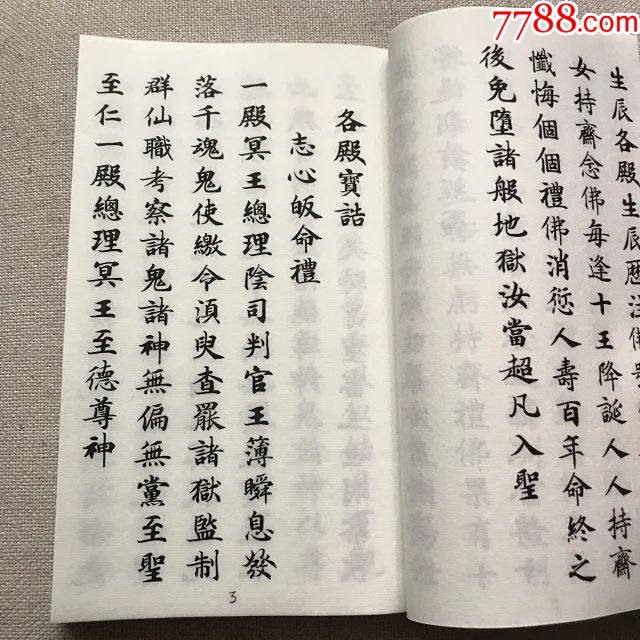 7788.com
生辰各殿生辰歷注佛
女持齋念佛每逢十王降誕人人持齋
懺悔個個禮佛消愆人壽百年命終之
後免墮諸般地獄汝當超凡入聖
各殿寶誥
志心皈命禮
一殿冥王總理陰司判官王簿瞬息發
落千魂鬼使繳令湏臾查嚴諸獄監制
群仙職考察諸鬼諸神無偏無黨至聖
至仁一殿總理冥王至德尊神
3